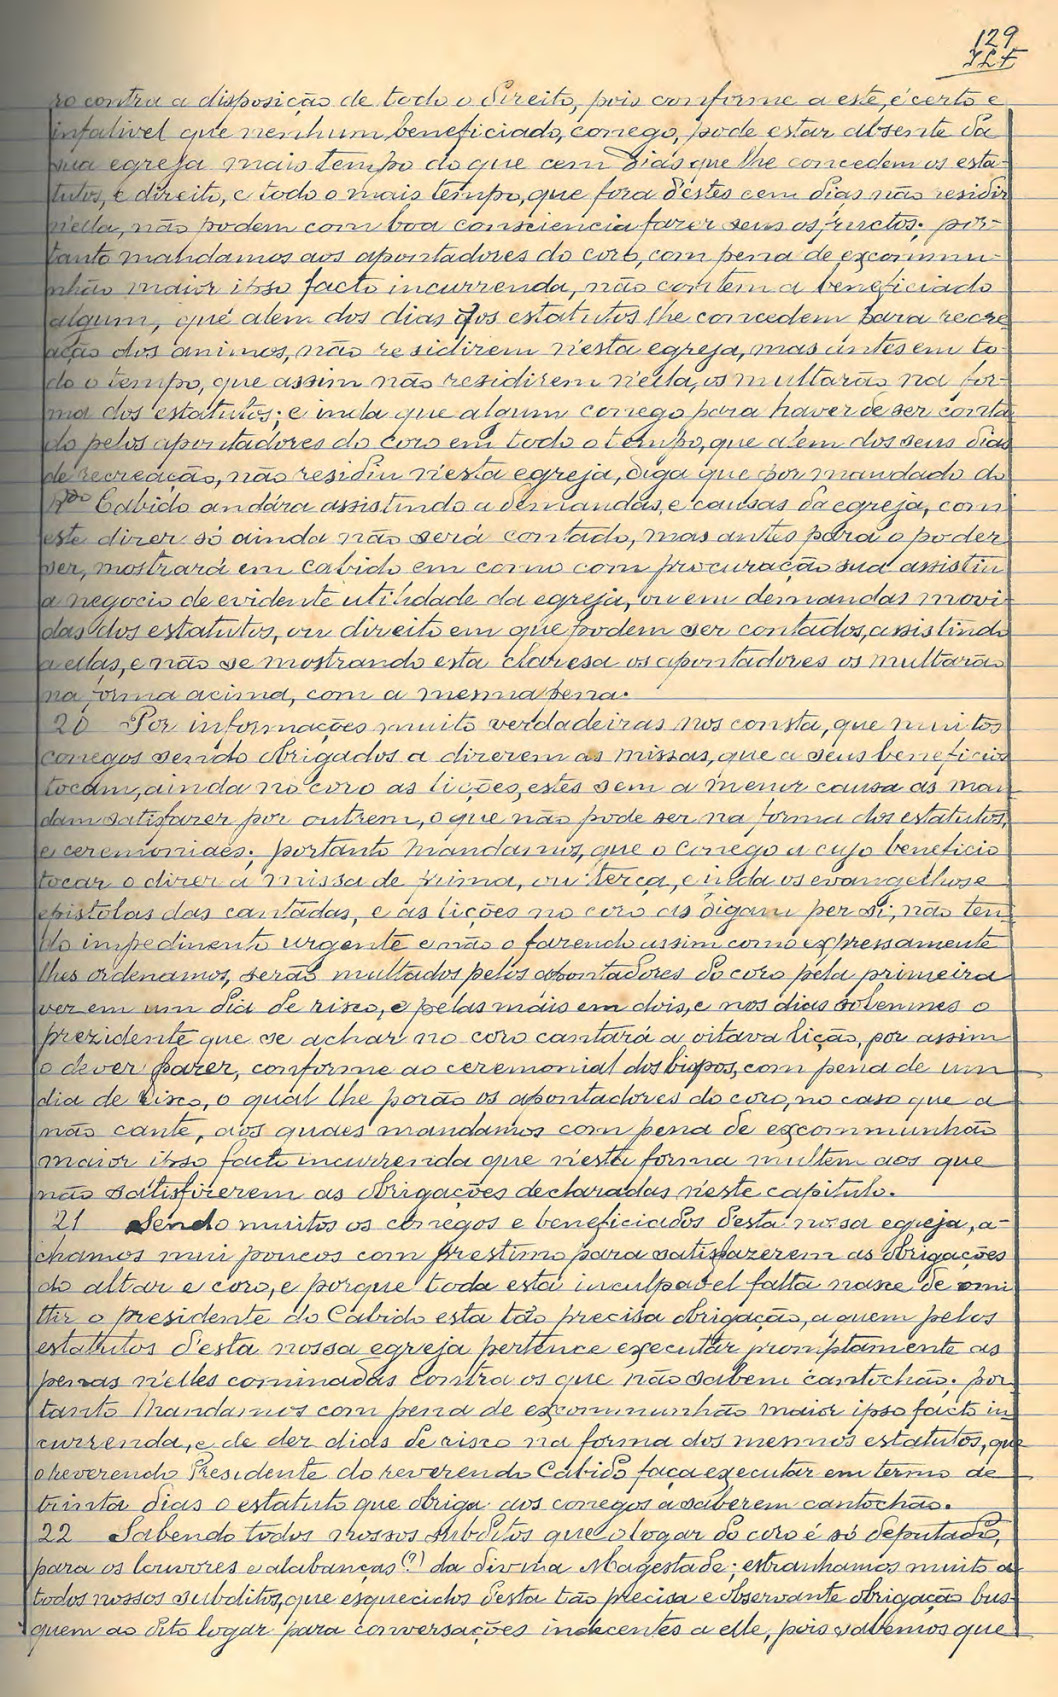 129
JLF
ro contra a disposição de todo o direito, pois conforme a este, é certo e
infalivel que nenhum beneficiado, conego, pode estar absente da
sua egreja mais tempo do que cem dias que lhe concedem os esta-
tutos, e direito, e todo o mais tempo, que fora d'estes cem dias não residir
n'ella, não podem com boa consciencia fazer seus os fructos; por-
tanto mandamos aos apontadores do coro, com pena de excommu-
nhão maior ipso facto incurrenda, não contem a beneficiado
algum, que alem dos dias q os estatutos lhe concedem para recre
ação dos animos, não residirem n'esta egreja, mas antes em to-
do o tempo, que assim não residirem n'ella, os multarão na for-
ma dos estatutos; e inda que algum conego para haver de ser conta
do pelos apontadores do coro em todo o tempo, que alem dos seus dias
de recreação, não residiu n'esta egreja, diga que por mandado do
Rdo Cabido andára assistindo a demandas, e causas da egreja, com
este dizer só ainda não será contado, mas antes para o poder
ser, mostrará em cabido em como com procuração sua assistiu
a negocio de evidente utilidade da egreja, ou em demandas movi-
das dos estatutos, ou direito em que podem ser contados, assistindo
a ellas, e não se mostrando esta claresa os apontadores os multarão
na forma acima, com a mesma pena.
20 Por informações muito verdadeiras nos consta, que muitos
conegos sendo obrigados a dizerem as missas, que a seus beneficios
tocam, ainda no coro as lições, estes sem a menor causa as man
dam satisfazer por outrem, o que não pode ser na forma dos estatutos,
e ceremoniaes; portanto mandamos, que o conego a cujo beneficio
tocar o dizer a missa de prima, ou terça, e inda os evangelhos e
epistolas das cantadas, e as lições no coro as digam per si, não ten-
do impedimento urgente e não o fazendo assim como expressamente
lhes ordenamos, serão multados pelos apontadores do coro pela primeira
vez em um dia de risco, e pelas máis em dois, e nos dias solemnes o
prezidente que se achar no coro cantará a oitava lição, por assim
o dever fazer, conforme ao ceremonial dos bispos, com pena de um
dia de risco, o qual lhe porão os apontadores do coro, no caso que a
não cante, aos quaes mandamos com pena de excommunhão
maior ipso facto incurrenda que n'esta forma multem aos que
não satisfizerem as obrigações declaradas n'este capitulo.
21 Sendo muitos os conegos e beneficiados d'esta nossa egreja, a-
chamos mui poucos com prestimo para satisfazerem as obrigações
do altar e coro, e porque toda esta inculpavel falta nasce de omi
ttir o presidente do Cabido esta tão precisa obrigação, a quem pelos
estatutos d'esta nossa egreja pertence executar promptamente as
penas n'elles cominadas contra os que não sabem cantochão; por
tanto mandamos com pena de excommunhão maior ipso facto in
currenda, e de dez dias de risco na forma dos mesmos estatutos, que
o reverendo Presidente do reverendo Cabido faça executar em termo de
trinta dias o estatuto que obriga aos conegos a saberem cantochão.
22 Sabendo todos nossos subditos que o logar do coro é só deputado,
para os louvores e alabanças (?) da divina Magestade; estranhamos muito a
todos nossos subditos, que esquecidos desta tão precisa e observante obrigação bus-
quem ao dito logar para conversações indecentes a elle, pois sabemos que